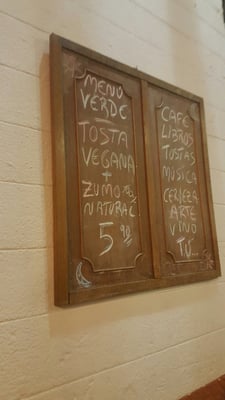 MENÚ
VERDE
TOSTA
VEGANA
+
ZUMO
NATURAL
5'90
CAFÉ
LIBROS
TOSTAS
MÚSICA
CERVEZA
ARTE
VINO
TÚ...